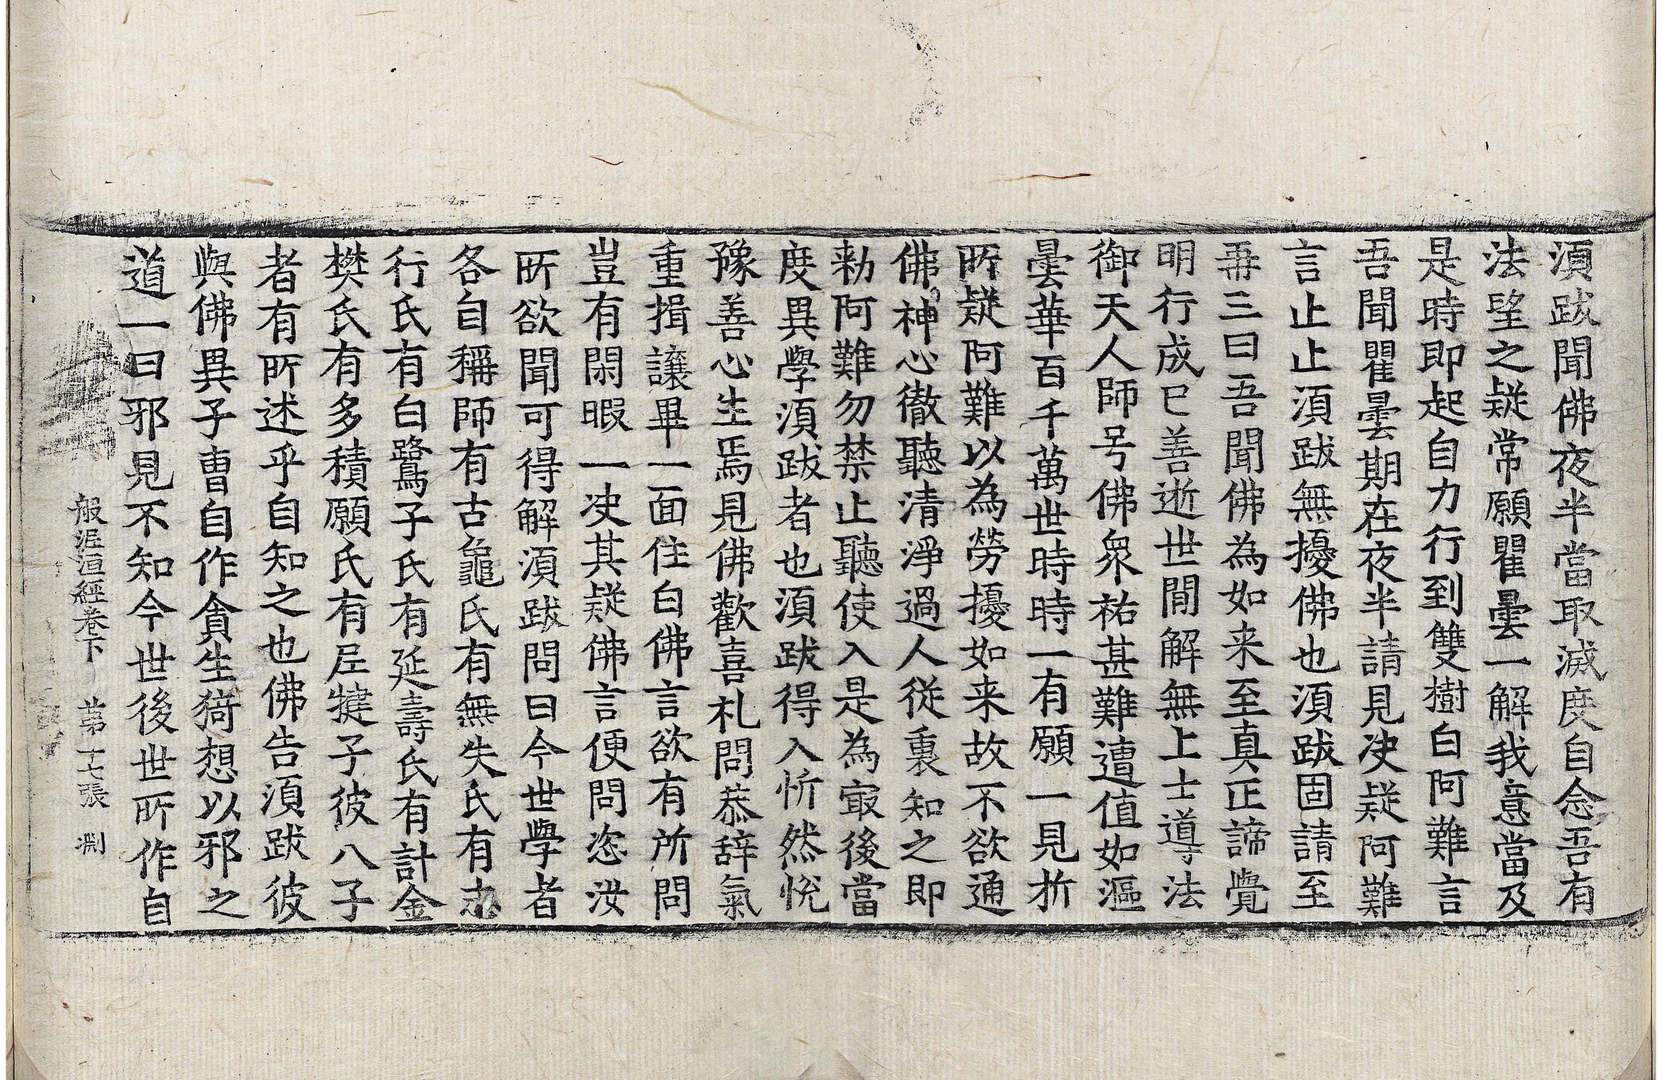 湏跋聞佛夜半當取滅度自念吾有
法望之疑常願瞿曇一解我意當及
是時即起自力行到雙樹白阿難言
吾聞瞿曇期在夜半請見决疑阿難
言止止湏跋無擾佛也湏跋固請至
再三曰吾聞佛為如来至真正諦覺
明行成已善逝世閒解無上士導法
御天人師号佛衆祐甚難遭值如漚
曇華百千萬世時時一有願一見折
所疑阿難以為勞擾如来故不欲通
佛神心徹聽清淨過人從裏知之即
勑阿難勿禁止聽使入是為㝡後當
度異學湏跋者也湏跋得入忻然恱
豫善心生焉見佛歡喜札問恭辝氣
重揖讓畢一面住白佛言欲有所問
豈有閑暇一决其疑佛言便問恣汝
所欲聞可得解湏跋問曰今世學者
各自稱師有古龜氏有無失氏有志
行氏有白鷺子氏有延壽氏有計金
樊氏有多積願氏有𡰱揵子彼八子
者有所述乎自知之也佛告湏跋彼
與佛異子曺自作貪生猗想以邪之
道一曰邪見不知今世後世所作自
般泥洹經卷下　苐十七張　渕